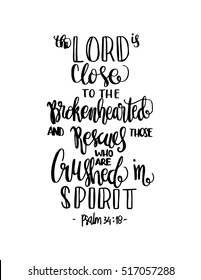 the LORD is
Close
TO THE
Brokenhearted
AND Rescues THOSE
WHO
ARE
Crushed in
SPIRIT
- Psalm 34:18 -
shutterstock
IMAGE ID: 517057288
www.shutterstock.com